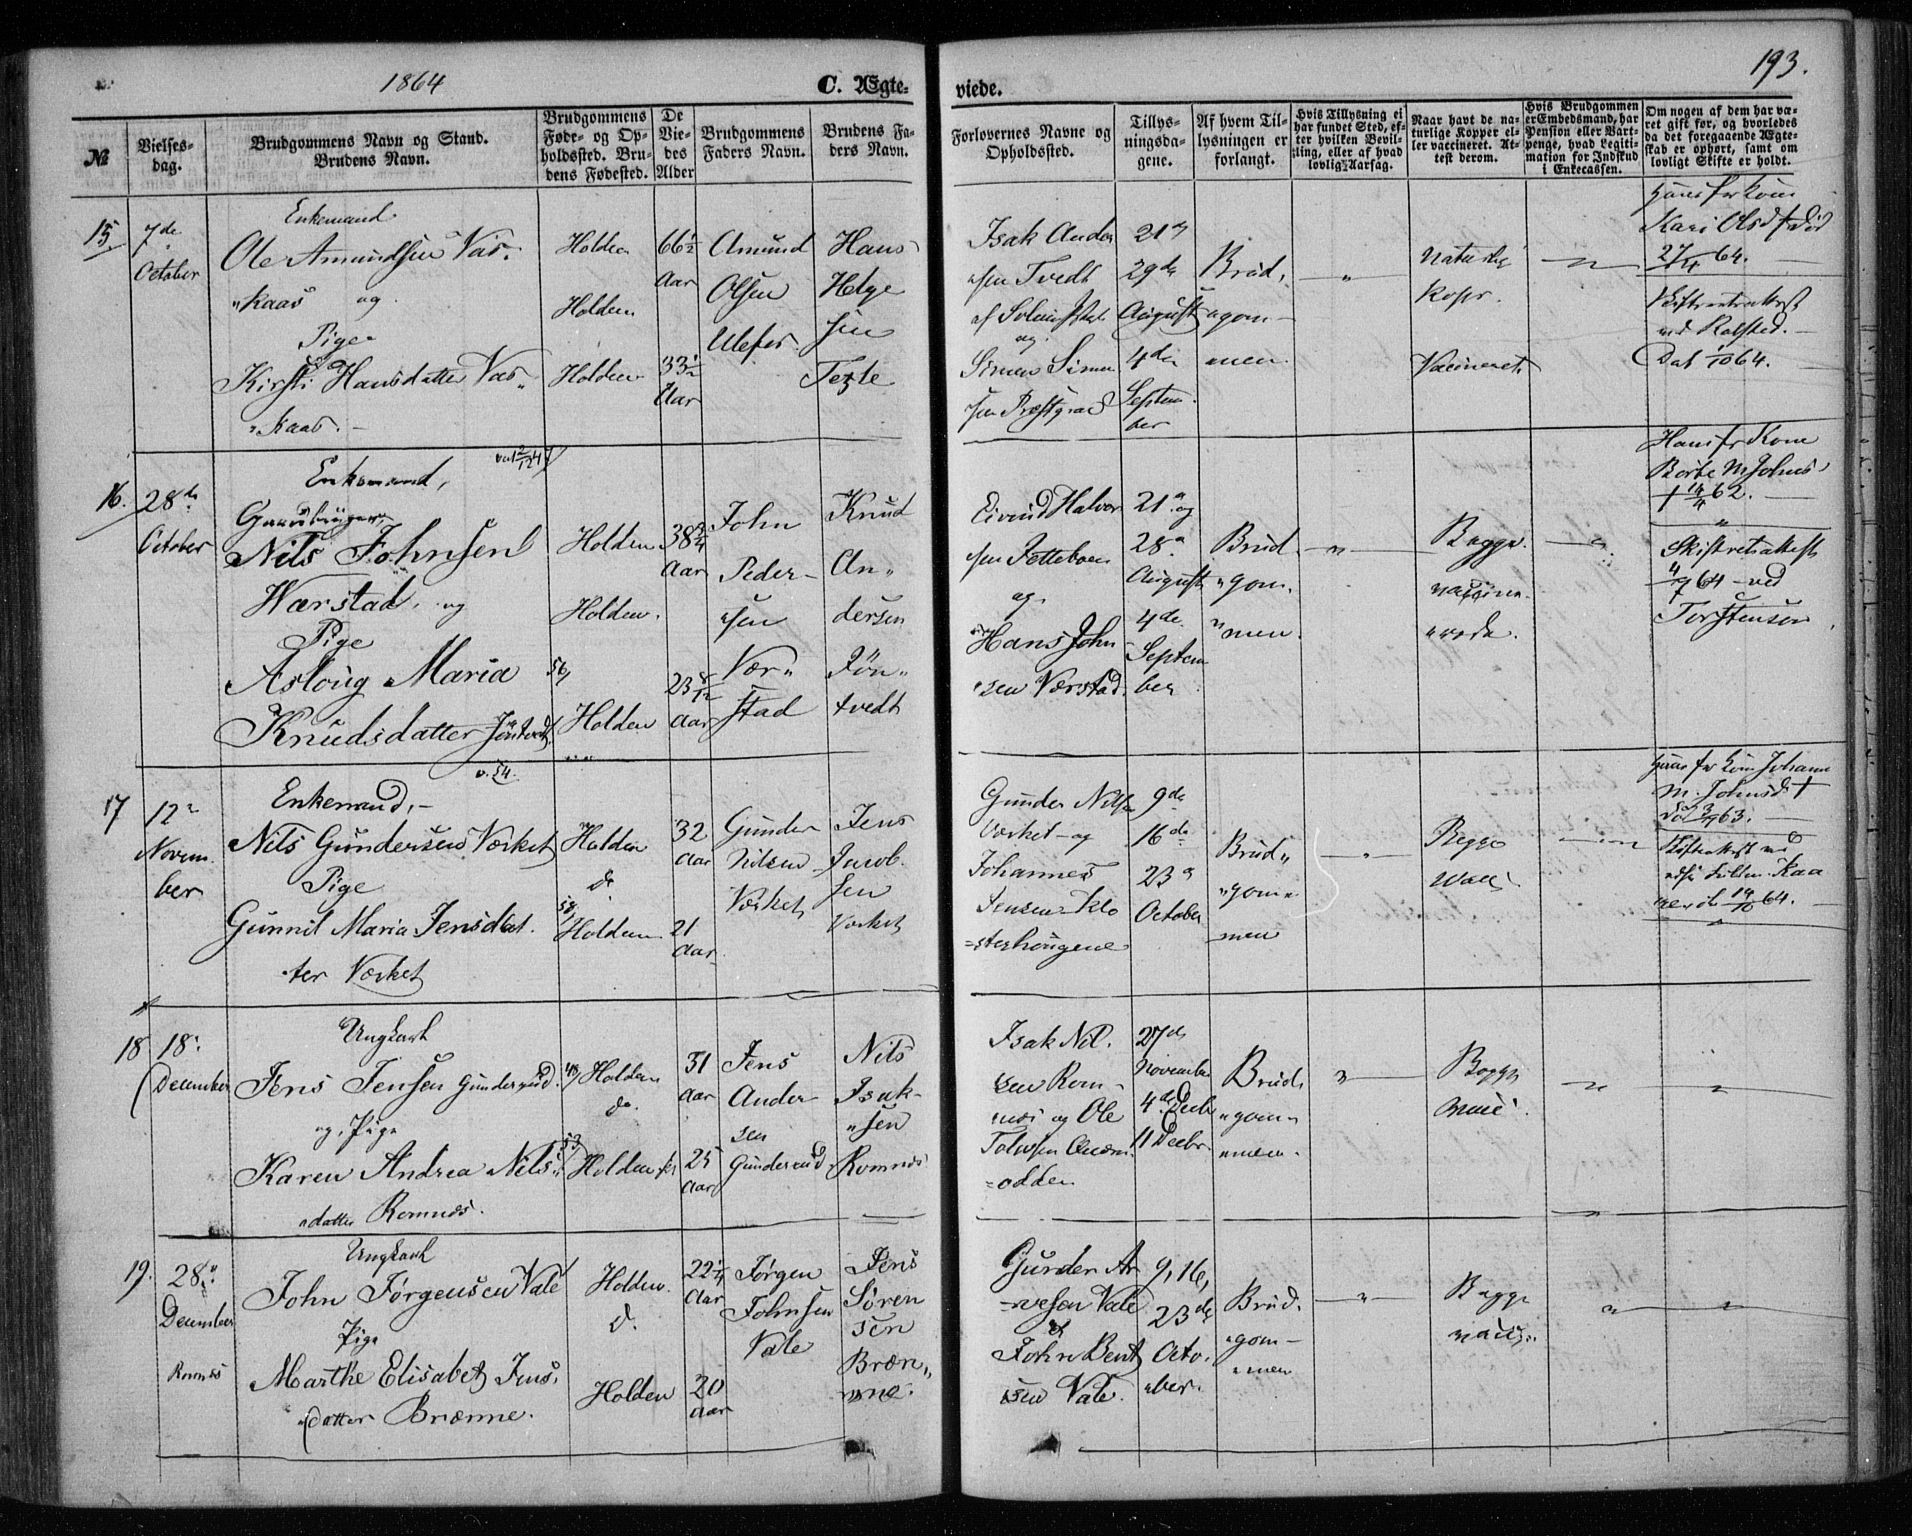 1864
C. Ægte-
viede.
193.
№
Vielses-
dag.
Brudgommens Navn og Stand.
Brudens Navn.
Brudgommens
Føde- og Op-
holdssted. Bru-
dens Fødested.
De
Vie-
des
Alder
Brudgommens
Faders Navn.
Brudens Fa-
ders Navn.
Forlovernes Navne og
Opholdssted.
Tillys-
ningsda-
gene.
Af hvem Til-
lysningen er
forlangt.
Hvis Tillysning ei
har fundet Sted, ef-
ter hvilken Bevil-
ling, eller af hvad
lovlig Aarsag.
Naar havt de na-
turlige Kopper el-
ler vaccineret. At-
test derom.
Hvis Brudgommen
er Embedsmand, har
Pension eller Vart-
penge, hvad Legiti-
mation for Indskud
i Enkecassen.
Om nogen af dem har væ-
ret gift før, og hvorledes
da det foregaaende Ægte-
skab er ophørt, samt om
lovligt Skifte er holdt.
15
7de
October
Enkemand
Ole Amundsen Vas-
"kaas og
Pige
Kirsti Hansdatter Vas-
"kaas.
Holden
Holden
Holden
66½
Aar
33½
Aar
Amund
Olsen
Ulefos
Hans
Helge
sen
Teste
Isak Ander
sen Tvedt
og
Simen Simen
sen
21
29de
August
4de
Septem
ber
Brud-
"gom-
men
Naturlig
Kopr.
Vaccineret
Kari Olsd † død
27/4 64.
Dat 64.
16.
28de
October
Enkemand,
Gaardbruger
Nils Johnsen
Værstad, og
Pige
Asloug Maria
Knudsdatter Jöntvedt
Holden
Holden
Holden
38¾
Aar
23 8/12
Aar
John
Peder-
"sen
Vær-
stad
Knud
An-
dersen
Jön-
tvedt
Eivind Halvor
sen
og
Hans John
sen Værstad
21 og
28
August
4de
Septem
ber
Brud
"gom
"men.
Begge
vaccine
rede.
Hans fr Kone
Berte M Johns
† 62.
Skifteretsattest
64 - ved
Torstenson
17
12
Novem
ber
v. 54.
Enkemand,
Nils Gundersen Værket
Pige
Gunnil Maria Jensdat
ter Værket
Holden
do
Holden
32
Aar
21
Aar
Gunder
Nilsen
Værket
Jens
Jacob
sen
Værket
Gunder Nilsen
Værket og
Johannes
Jensen Klo
=sterhougene
9de
16de
23
October
Brud"
"gom"
men
Begge
vacc.
Hans fr Kone Johanne
M. Johnsd †
død 63.
64.
18
18
December
Ungkarl
Jens Jensen Gunderrud
og Pige
Karen Andrea Nils-
"datter Romnes.
Holden
do.
53
Holden
31
Aar
25
Aar
Jens
Ander
sen
Gunderrud
Nils
Isak-
"sen
Romnes
Isak Nil.
sen Rom-
nes og Ole
odden
27de
November
4de Decbr
11 Decbr.
Brud
"gom"
men.
Begge
vacc.
19.
28
December
Romnes
Ungkarl
John Jørgensen Vale
Pige
Marthe Elisabet Jens.
"datter Brænne.
Holden
d.
Holden
22¼
Aar
20
Aar
Jørgen
Johnsen
Vale
Jens
Søren
sen
Bræn"
"ne.
Gunder Ar
=nesen Vale
&
John Bent
sen Vale.
9, 16,
23de
Octo-
"ber.
Brud.
"gom-
"men
Begge
vacc.